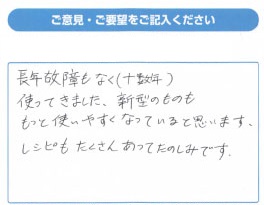 ご意見・ご要望をご記入ください
長年故障もなく(十数年)
使ってきました、新型のものも
もっと使いやすくなっていると思います、
レシピもたくさんあってたのしみです.